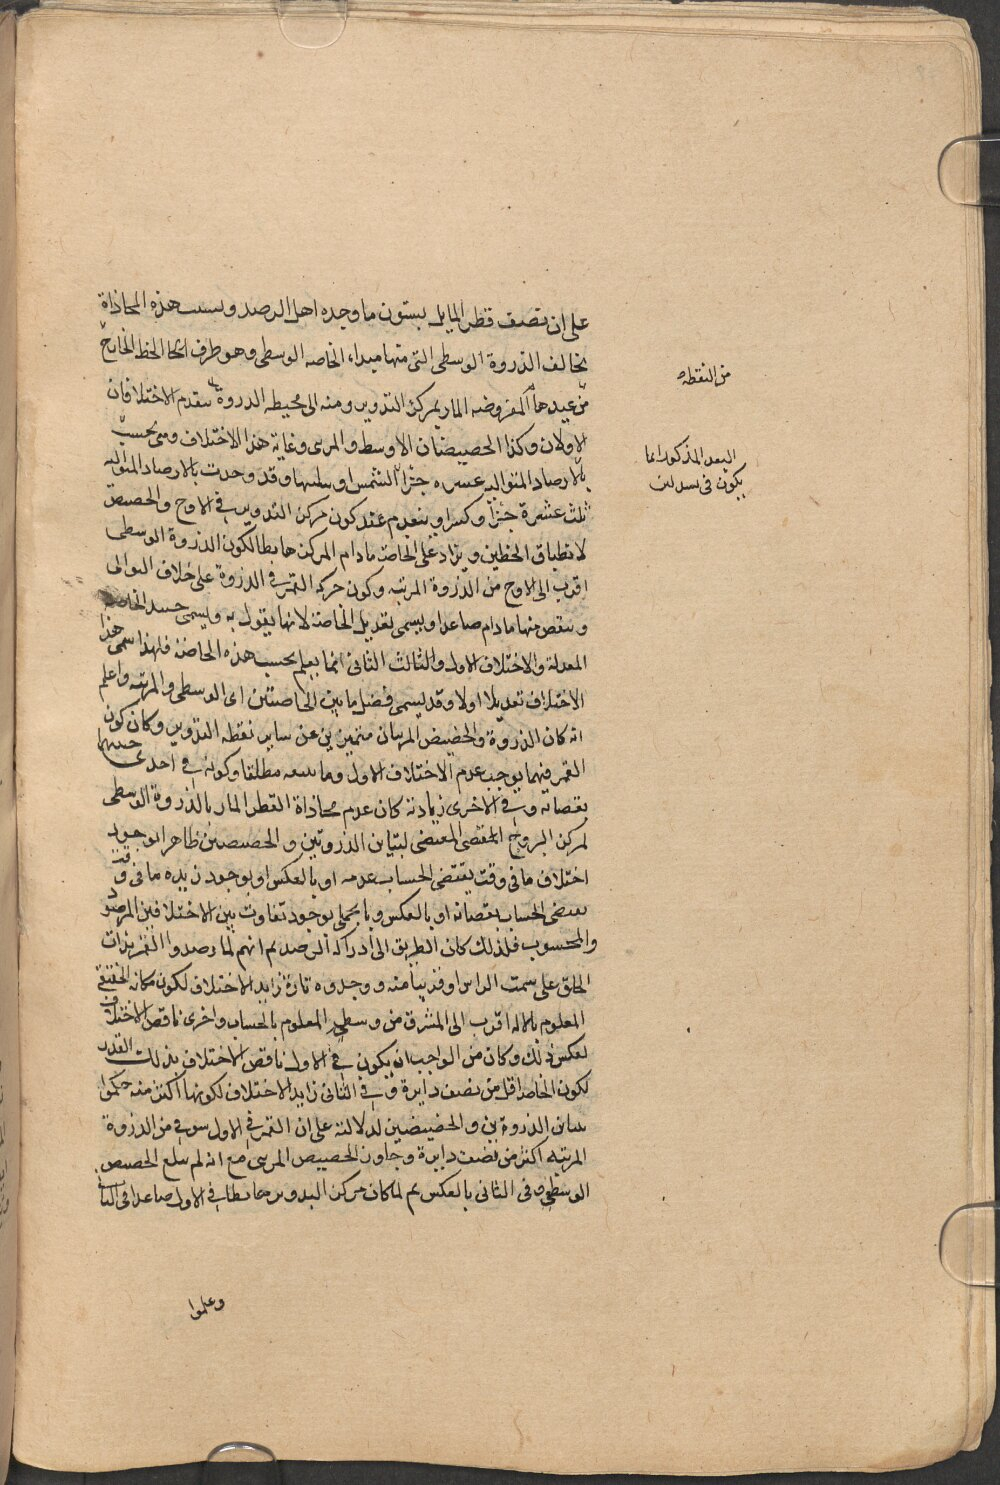 على ان نصف قطر المايل ستون ما وجده اهل الرصد وبسبب هذه المحاذاة
يخالف الذروة الوسطى التى منها مبداء الخاصه الوسطى وهو طرف الخط الخارج
من النقطه
من بعيدها المفروضه المار بمركز التدوير ومنه الى محيطه الذروة فان
الاولان وكذا الحضيضان الاوسط والمرىى وغاية هذا الاختلاف وهى بحسب
البعد المذكور انما
يكون فى
بالارصاد المتواليه عشره جزأ وقد وجدت بالارصاد المتواليه
ثلث عشرة جزأ وكسرا وينعدم عند كون مركز التدوير فى الاوج والحضيض
لانطباق الخطين ويزاد على الخاصة مادام المركز هابطا لكون الذروة الوسطى
اقرب الى الاوج من الذروة المرئيه وكون حركه القمر فى الذروة على خلاف التوالى
وينقص منها مادام صاعدا ويسمى تعديل الخاصة لانها يقول به ويسمى الخاصه
المعدلة والاختلاف الاول والثالث الثانى انما يعلم بحسب هذه الخاصة فلهذا سمى هذا
الاختلاف تعديلا اولا وقد يسمى فضل ما بين الخاصتين اى الوسطى والمرئيه واعلم
انه كان الذروة والحضيض المرئيان متميزين عن ساير نقطه التدوير وكان كون
القمر فيهما يوجب عدم الاختلاف الاول وما يتبعه مطلقا وكونه فى احدى
نقصانه وفى الاخرى زيادته كان عدم محاذاة القطر المار بالذروة الوسطى
لمركز البروج المقتضى لتباين الذروتين والحضيضين ظاهرا بوجود
اختلاف ما فى وقت يقتضى الحساب عدمه او بالعكس او بوجود زيده ما فى وقت
يقتضى الحساب نقصانه او بالعكس وبالجملة بوجود تفاوت بين الاختلافين المرصود
والمحسوب فلذلك كان الطريق الى ادراكه الرصد ثم انهم لما رصدوا القمر بذات
الحلق على سمت الراس او قريبا منه ووجدوه تارة زايد الاختلاف لكون مكانه الحقيقى
المعلوم بالاله اقرب الى المشرق من وسطه المعلوم بالحساب واخرى ناقص الاختلاف
لعكس ذلك وكان من الواجب ان يكون فى الاول ناقص الاختلاف بذلك القدر
لكون الخاصه اقل من نصف دايرة وفى الثانى زايد الاختلاف لكونها اكثر منه حكموا
بتباين الذروتين والحضيضين لدلالته على ان القمر فى الاول سرى من الذروة
المرئيه اكثر من نصف دايرة وجاوز الحضيض المرىى مع انه لم يبلغ الحضيض
الوسطى وفى الثانى بالعكس ثم لما كان مركز التدوير هابطا فى الاول صاعدا فى الثانى
وعلموا